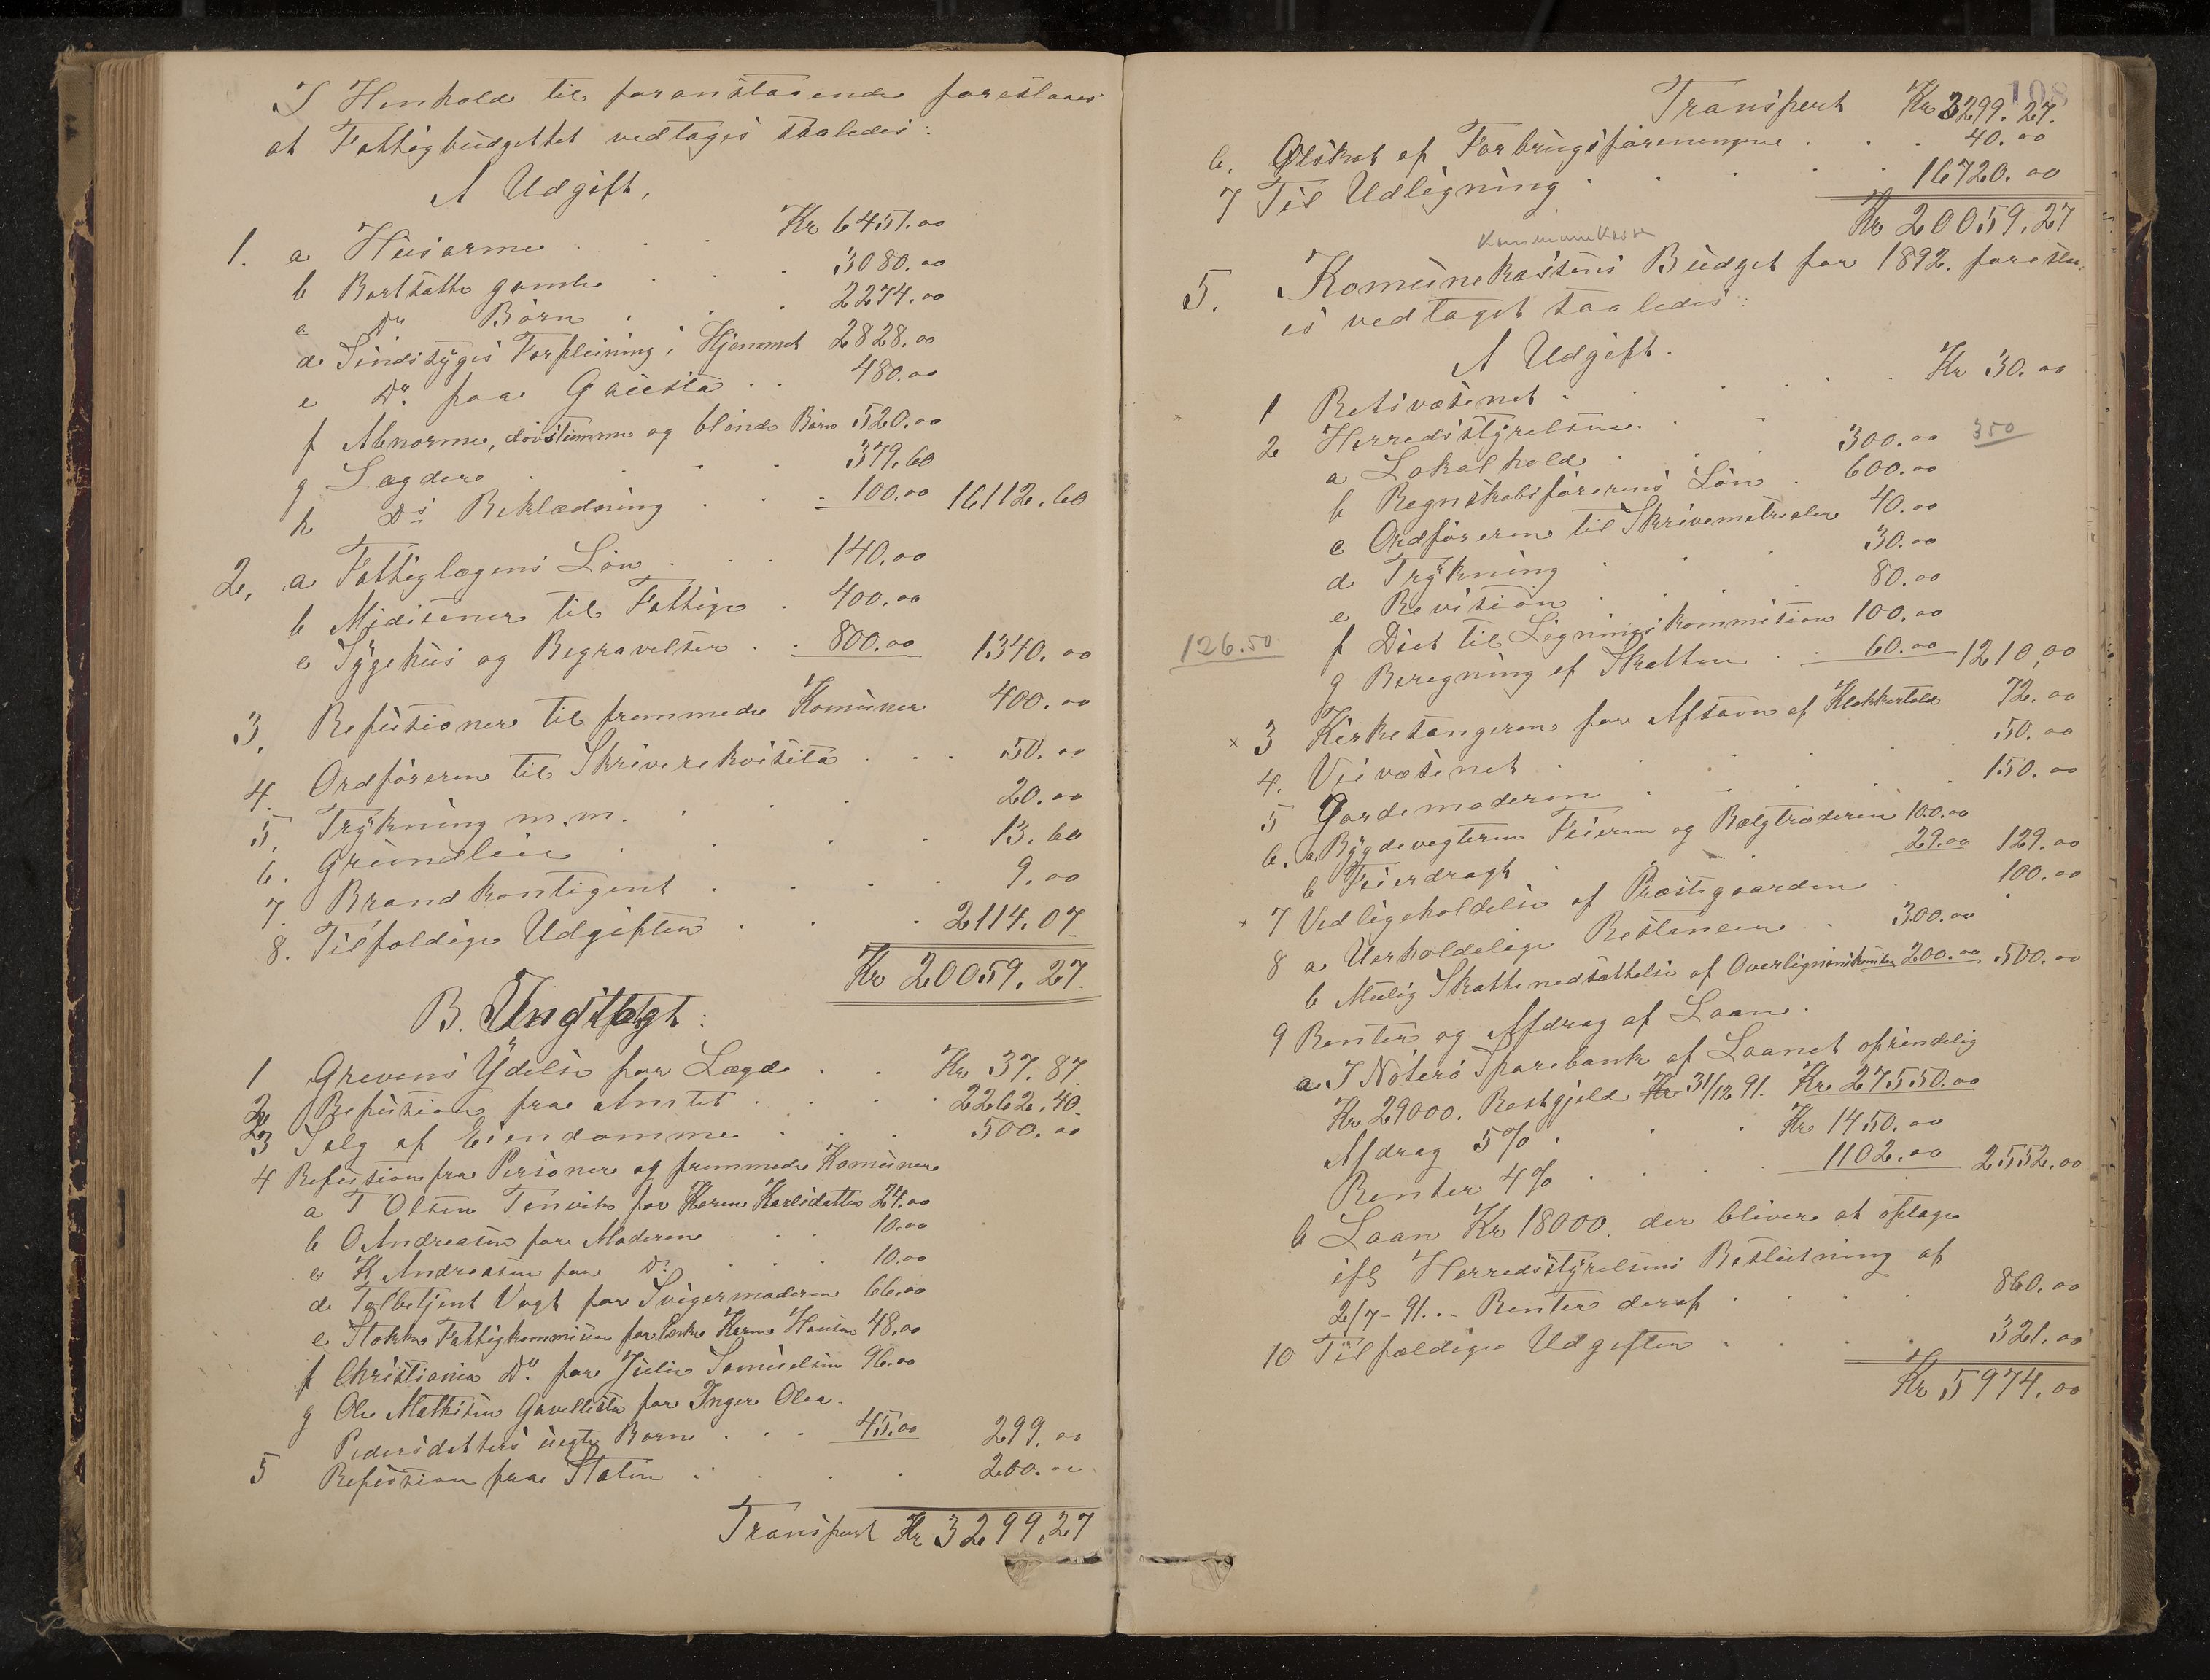 I Henhold til foranstaaende foreslaaes
at Fattigbudgettet vedtages saaledes:
A Udgift,
1. a Husarme . . . Kr 6451.00
b Bortsatte gamle . . . 3080.00
c Do Børn . . . 2274.00
d Sindssyges Forpleining i Hjemmet 2828.00
e Do. paa Gausta . . 480.00
f Abnorme, døvstumme og blinde Børn 520.00
g Lægdere . . . 379.60
h Ds Beklædning . . . 100.00 16112.60
2, a Fattiglægens Løn . . . 140.00
b Midisener til Fattige . 400.00
c Sygehus og Begravelser . . 800.00 1340.00
3, Refusioner til fremmede Komuner 400.00
4. Ordføreren til Skriverekvisita . . . 50.00
5, Trykning m.m. . . . 20.00
6. Grundleie . . . . 13.60
7. Brandkontigent . . . . 9.00
8. Tilfældige Udgifter . . . 2114.07
Kr 20059.27.
B. Indtægt:
1 Grevens Ydelse for Lægd . . Kr 37.87.
2 Refusion fra Amtet . . . . 2262.40.
3 Salg af Eiendomme . . . 500.00
4 Refusion fra Personer og fremmede Komuner
a T Olsen Tenvik for Karen Karlsdatter 24.00
b O Andreasen for Moderen . . . 10.00
c K Andreasen for Do . . . 10.00
d Tolbetjent Vogt for Svigermoderen 66.00
e Stokke Fattigkommission for Enke Karen Hansen 48.00
f Christiania Do. for Julie Samuelsen 96.00
g Ole Mathisen Gavellista for Inger Olea
Pedersdatters uegte Barn . . . 45.00 299.00
5 Refusion fra Staten . . . 200.00
Transport Kr 3299,27
108
Transport Kr 3299.27.
6. Ølskat af Forbrugsforeningene . . . 40.00
7 Til Udligning . . . . 16720.00
Kr 20059.27
Kommunekasse
5. Komunekassens Budget for 1892. foreslaa-
es vedtaget saaledes:
A Udgift.
1 Retsvæsenet . . . . Kr 30.00
2 Herredsstyrelsen. . .
a Lokalhold . . . 300.00 350
b Regnskabsførerens Løn . 600.00
c Ordføreren til Skrivematrialer 40.00
d Trykning . . 30.00
e Revision . . . 80.00
126.50
f Diet til Ligningskommission 100.00
g Beregning af Skatten . . 60.00 1210,00
x 3 Kirkesangeren for Afsavn af Klokkertold 72.00
4. Veivæsenet . . . 50.00
5 Jordemoderen . . . 150.00
6. a Bygdevegteren Feieren og Bælgtræderen 100.00
b Feierdragt . . . 29.00 129.00
x 7 Vedligeholdelse af Præstegaarden . . 100.00
8 a Uerholdelige Restanser . 300.00
b Mulig Skattenedsættelse af Overligningskomiten 200.00 500.00
9 Renter og Afdrag af Laan.
a I Nøterø Sparebank af Laanet oprindelig
Kr 29000. Restgjeld Kr 31/12 91. Kr 27550.00
Afdrag 5% . . . Kr 1450.00
Renter 4% . . . 1102.00 2552.00
b Laan Kr 18000. der bliver at optage
ifl Herredsstyrelsens Beslutning af
2/7-91... Renter deraf . . . . 860.00
10 Tilfældige Udgifter . . . 321.00
Kr 5974.00